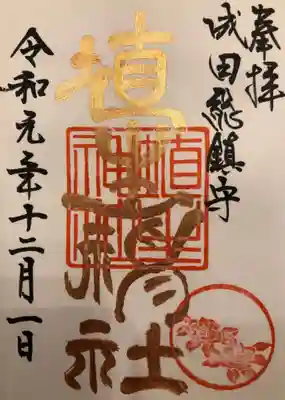 奉拝
成田総鎮守
埴生神社
埴生
神社
令和元年十二月一日